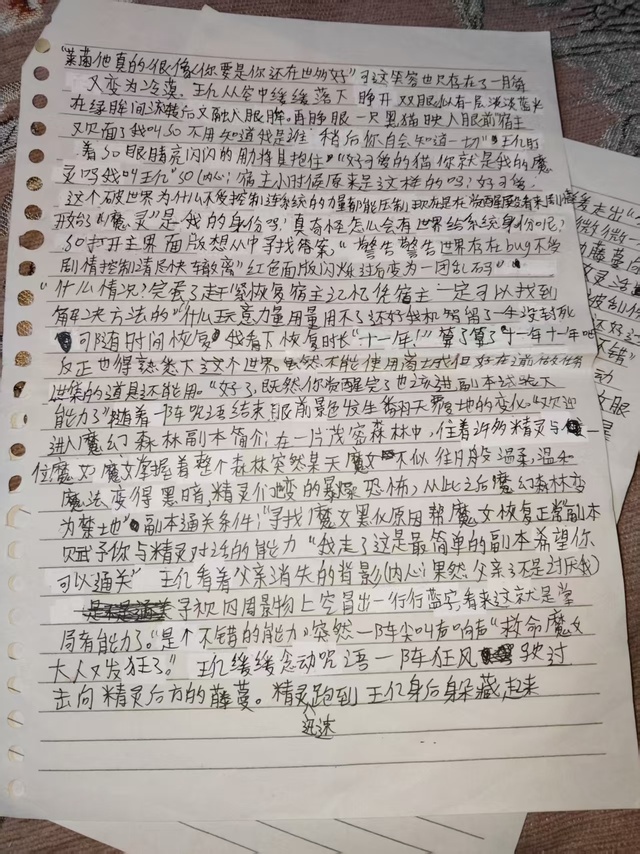 "莱茵他真的很像你要是你还在世多好"可这笑容也只存在了一月每
又变为冷漠。王亿从空中缓缓落下睁开双眼似有一层淡淡蓝光
在绿眸间流转后又融入眼眸。再睁眼一只黑猫映入眼前"宿主
又见面了我叫SO不用知道我是谁稍后你自会知道一切"王亿盯
着SO眼睛亮闪闪的肋将其抱住"好可爱的猫你就是我的魔
灵吗我叫王亿"SO(内心:宿主小时候原来是这样的吗!好可爱
这个破世界为什么不受控制连系统的力量都能压制
开始了"魔灵"是我的身份吗!真奇怪怎么会有世界给系统身份呢?
SO打开主界面版想从中寻找答案。"警告警告世界存在bug不受
剧情控制请尽快撤离"红色面版闪烁过后变为一团乱码
"什么情况?完蛋了赶紧恢复宿主记忆凭宿主一定可以找到
解决方法的"什么玩意力量用量用不了还好我机智留了一手没封死
可随时间恢复"我看下恢复时长"十一年!"算了算了十一年十年吧
反正也得熟悉下这个世界。虽然不能使用商城但好在之前做任务
收集的道具还能用。"好了,既然你觉醒完了也该进副本试试
能力了"随着一阵咒语结束眼前景色发生翻天覆地的变化。"欢迎
进入魔幻森林副本简介:在一片茂密森林中,住着许多精灵与一
位魔女。魔女掌握着整个森林突然某天魔女不似往月般温柔,温和
魔法变得黑暗,精灵们也变的暴燥恐怖,从此之后魔幻森林变
为禁地"副本通关条件:"寻找广魔女黑化原因帮魔女恢复正常"副本
赋予你与精灵对话的能力"我走了这是最简单的副本希望你
可以通关"王亿看着父亲消失的背影(内心:果然父亲不是讨厌我)
寻视四周景物上空冒出一行行蓝字,看来这就是掌
局者能力了。"是个不错的能力"突然一阵尖叫声响声"救命魔女
大人又发狂了。"王亿缓缓念动咒语一阵狂风驶过
击向精灵后方的藤蔓。精灵跑到王亿身后躲藏起来
迅速
走出"
微微
藤蔓
还好
不错"
动
眼